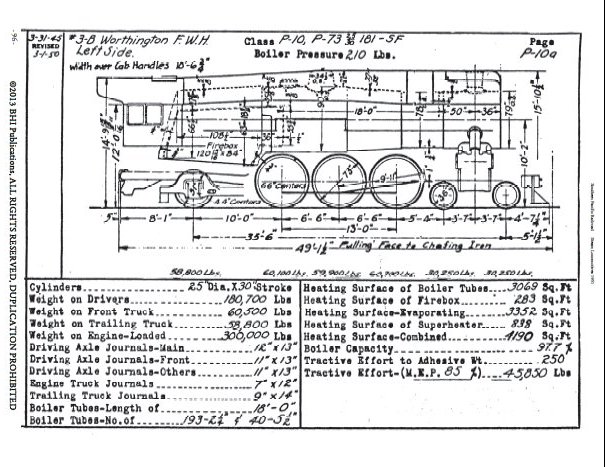 3-31-45 #3-B Worthington F.W.H. Class P-10, P-73 181-SF Page
REVISED Left Side. Boiler Pressure 210 Lbs. P-10a
3-1-50
width over Cab Handles 10'-6
18'-0" 50" 36"
15'-10
14'-9
12'-0
108
Firebox
120 x 84
10'-2"
73"
66"Centers
44"Centers
36"
5" 8'-1" 10'-0" 6'-6" 6'-6" 5'-4" 3'-7" 3'-7" 4'-7
13'-0"
35'-6" 5'-1
49'-1 Pulling Face to Chafing Iron
58,800 Lbs. 60,100 Lbs. 59,900 Lbs. 60,700 Lbs. 30,250 Lbs. 30,250 Lbs.
Cylinders 25"Dia.X30"Stroke
Weight on Drivers 180,700 Lbs
Weight on Front Truck 60,500 Lbs
Weight on Trailing Truck 58,800 Lbs
Weight on Engine-Loaded 300,000 Lbs
Driving Axle Journals-Main 12"x13"
Driving Axle Journals-Front 11"x13"
Driving Axle Journals-Others 11"x13"
Engine Truck Journals 7"x12"
Trailing Truck Journals 9"x14"
Boiler Tubes-Length of 18'-0"
Boiler Tubes-No.of 193-2¼" & 40-5½"
Heating Surface of Boiler Tubes 3069 Sq.Ft
Heating Surface of Firebox 283 Sq.Ft
Heating Surface-Evaporating 3352 Sq.Ft
Heating Surface of Superheater 838 Sq.Ft
Heating Surface-Combined 4190 Sq.Ft
Boiler Capacity 97.7 %
Tractive Effort to Adhesive Wt. 250
Tractive Effort-(M.E.P. 85 %) 45,850 Lbs
-96-
©2013 BHI Publications, ALL RIGHTS RESERVED, DUPLICATION PROHIBITED